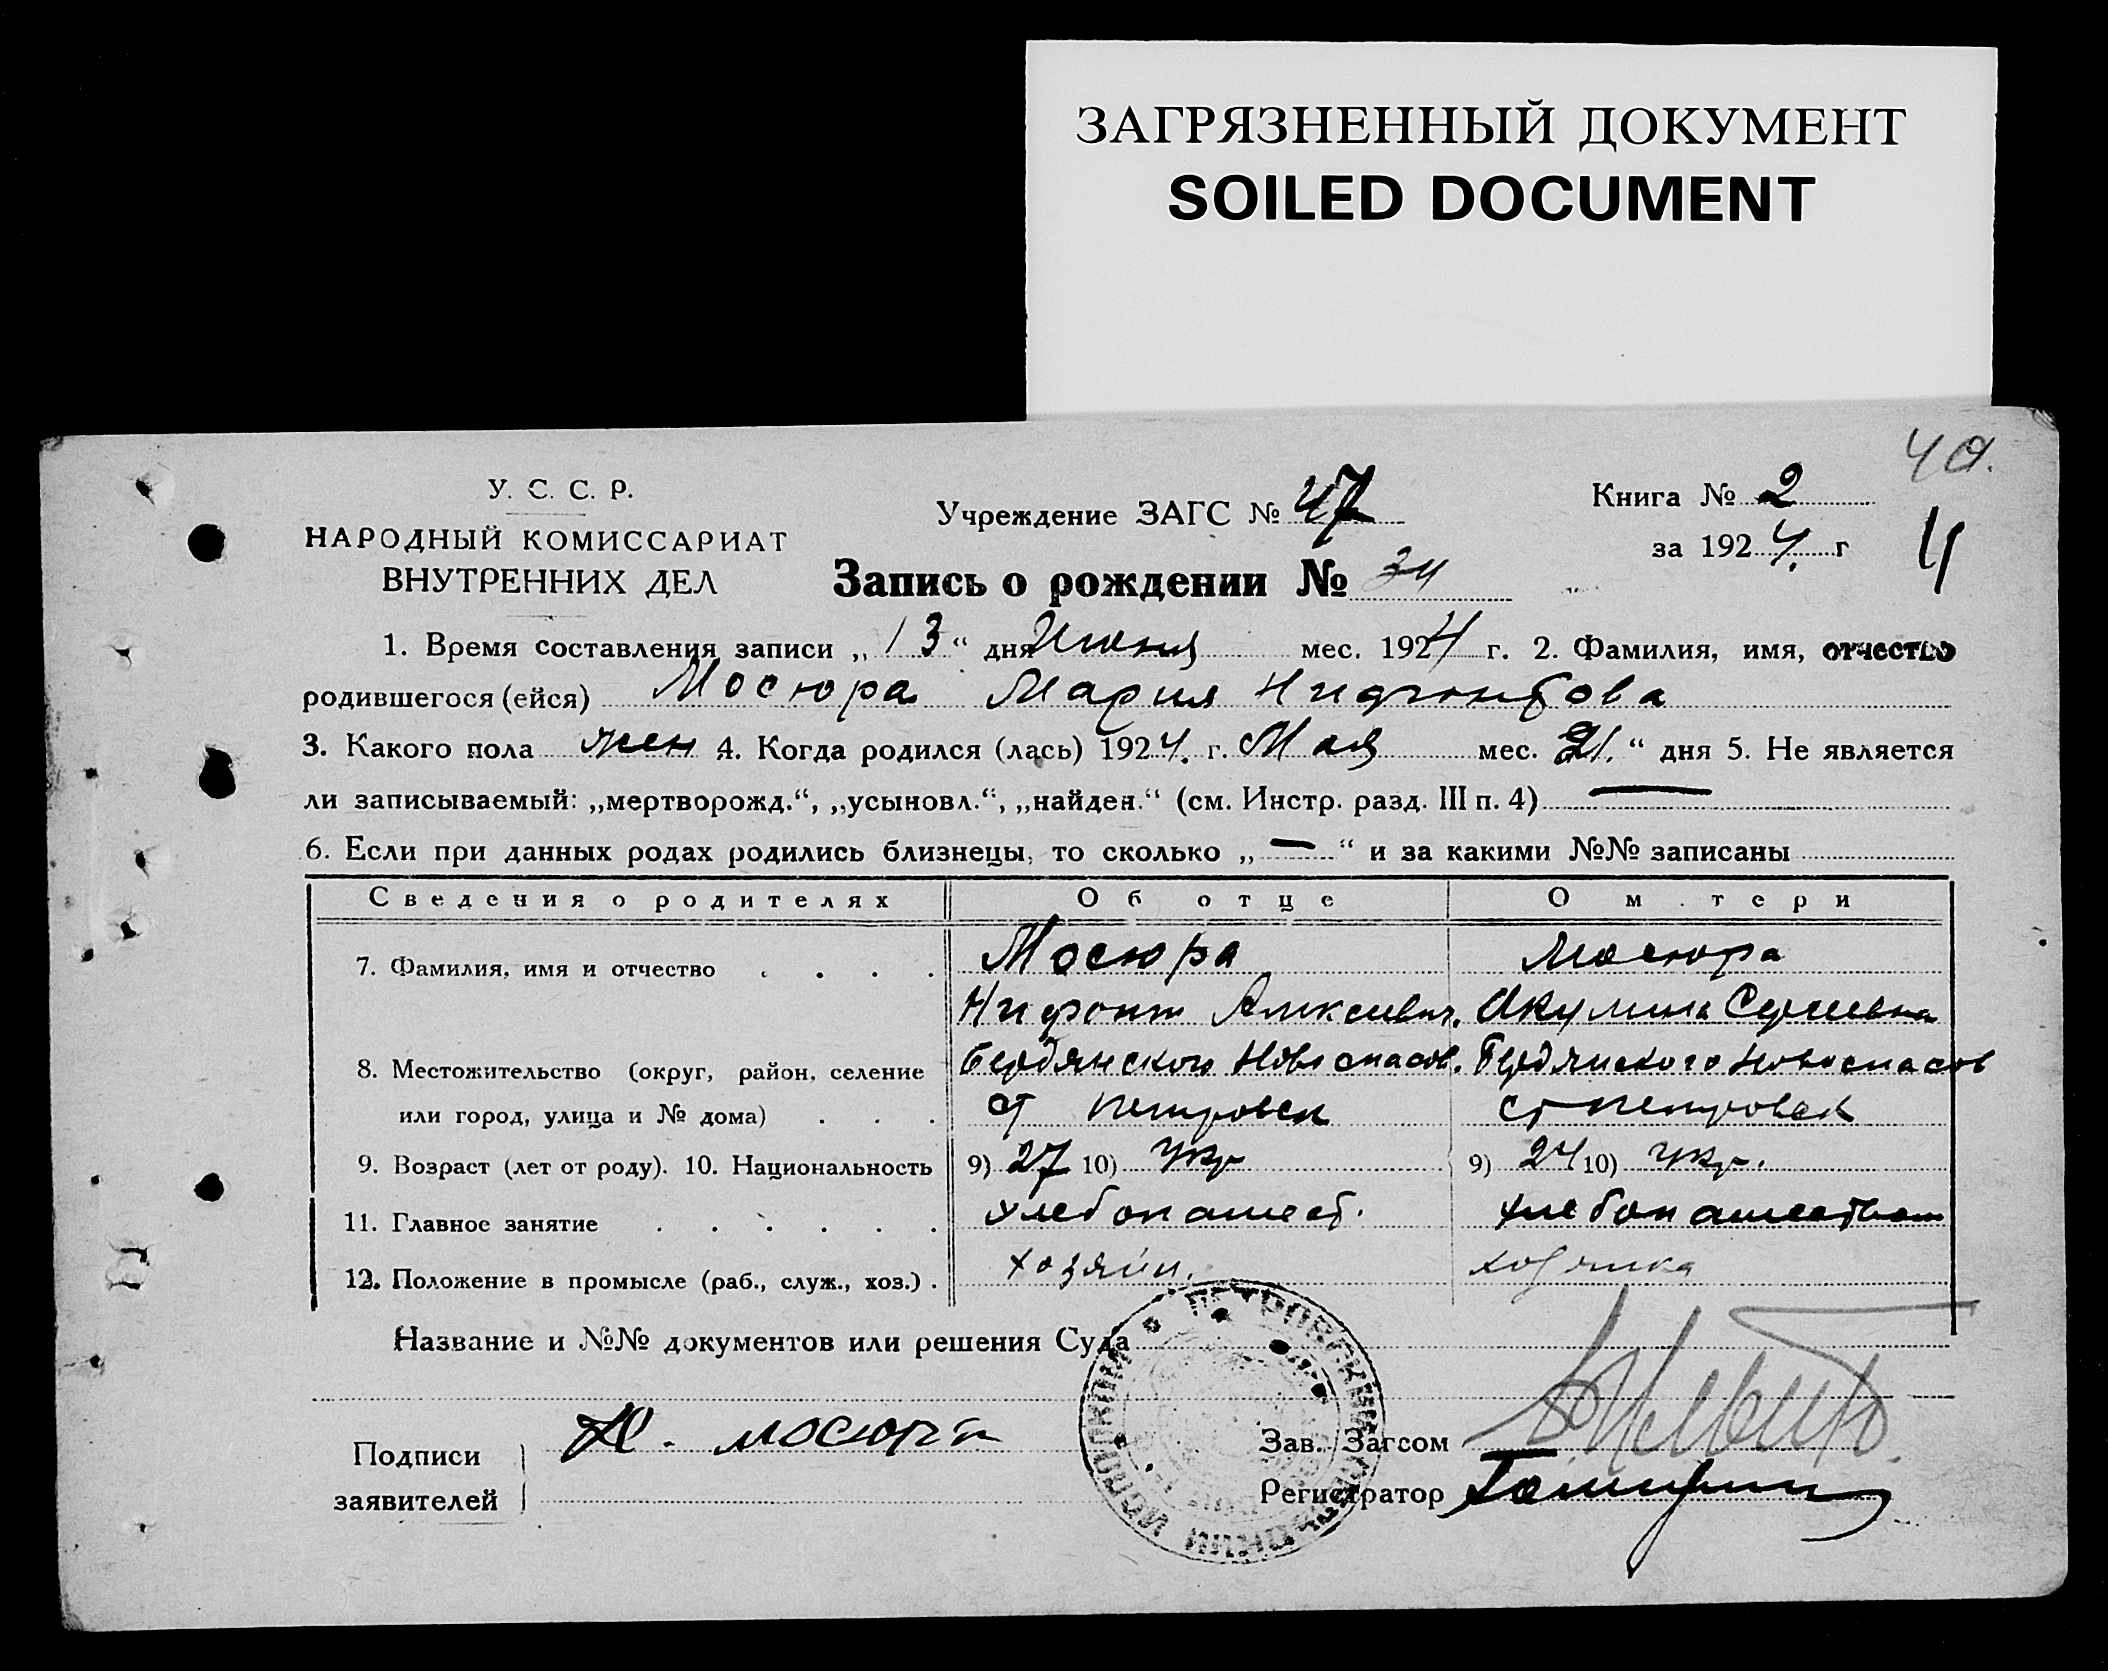 ЗАГРЯЗНЕННЫЙ ДОКУМЕНТ
SOILED DOCUMENT
40.
У. С. С. Р.
НАРОДНЫЙ КОМИССАРИАТ
ВНУТРЕННИХ ДЕЛ
Учреждение ЗАГС № 47
Книга № 2
за 1924. г
Запись о рождении № 34
1. Время составления записи „13“ дня Июня мес. 1924 г. 2. Фамилия, имя, отчество
родившегося (ейся) Мосюра Мария Нифонтова
3. Какого пола жен 4. Когда родился (лась) 1924. г. Мая мес. 21.“ дня 5. Не является
ли записываемый: „мертворожд.“, „усыновл.“, „найден.“ (см. Инстр. разд. III п. 4) —
6. Если при данных родах родились близнецы, то сколько „—“ и за какими №№ записаны
Сведения о родителях Об отце О м тери
7. Фамилия, имя и отчество . . . . Мосюра Мосюра
Нифонт Алексеевич. Акулина Сергеевна
8. Местожительство (округ, район, селение Бердянского Новоспасов. Бердянского Новоспасов
или город, улица и № дома) . . . ст Петровск ст Петровск
9. Возраст (лет от роду). 10. Национальность 9) 27 10) Укр 9) 24 10) Укр.
11. Главное занятие . . . . . . хлебопашест. хлебопашеством
12. Положение в промысле (раб., служ., хоз.) . хозяин. хозяика
Название и №№ документов или решения Суда
Подписи
заявителей
Н. мосюра
Зав. Загсом
Регистратор
ПЕТРОВСКИЙ
ИСПОЛКОМ